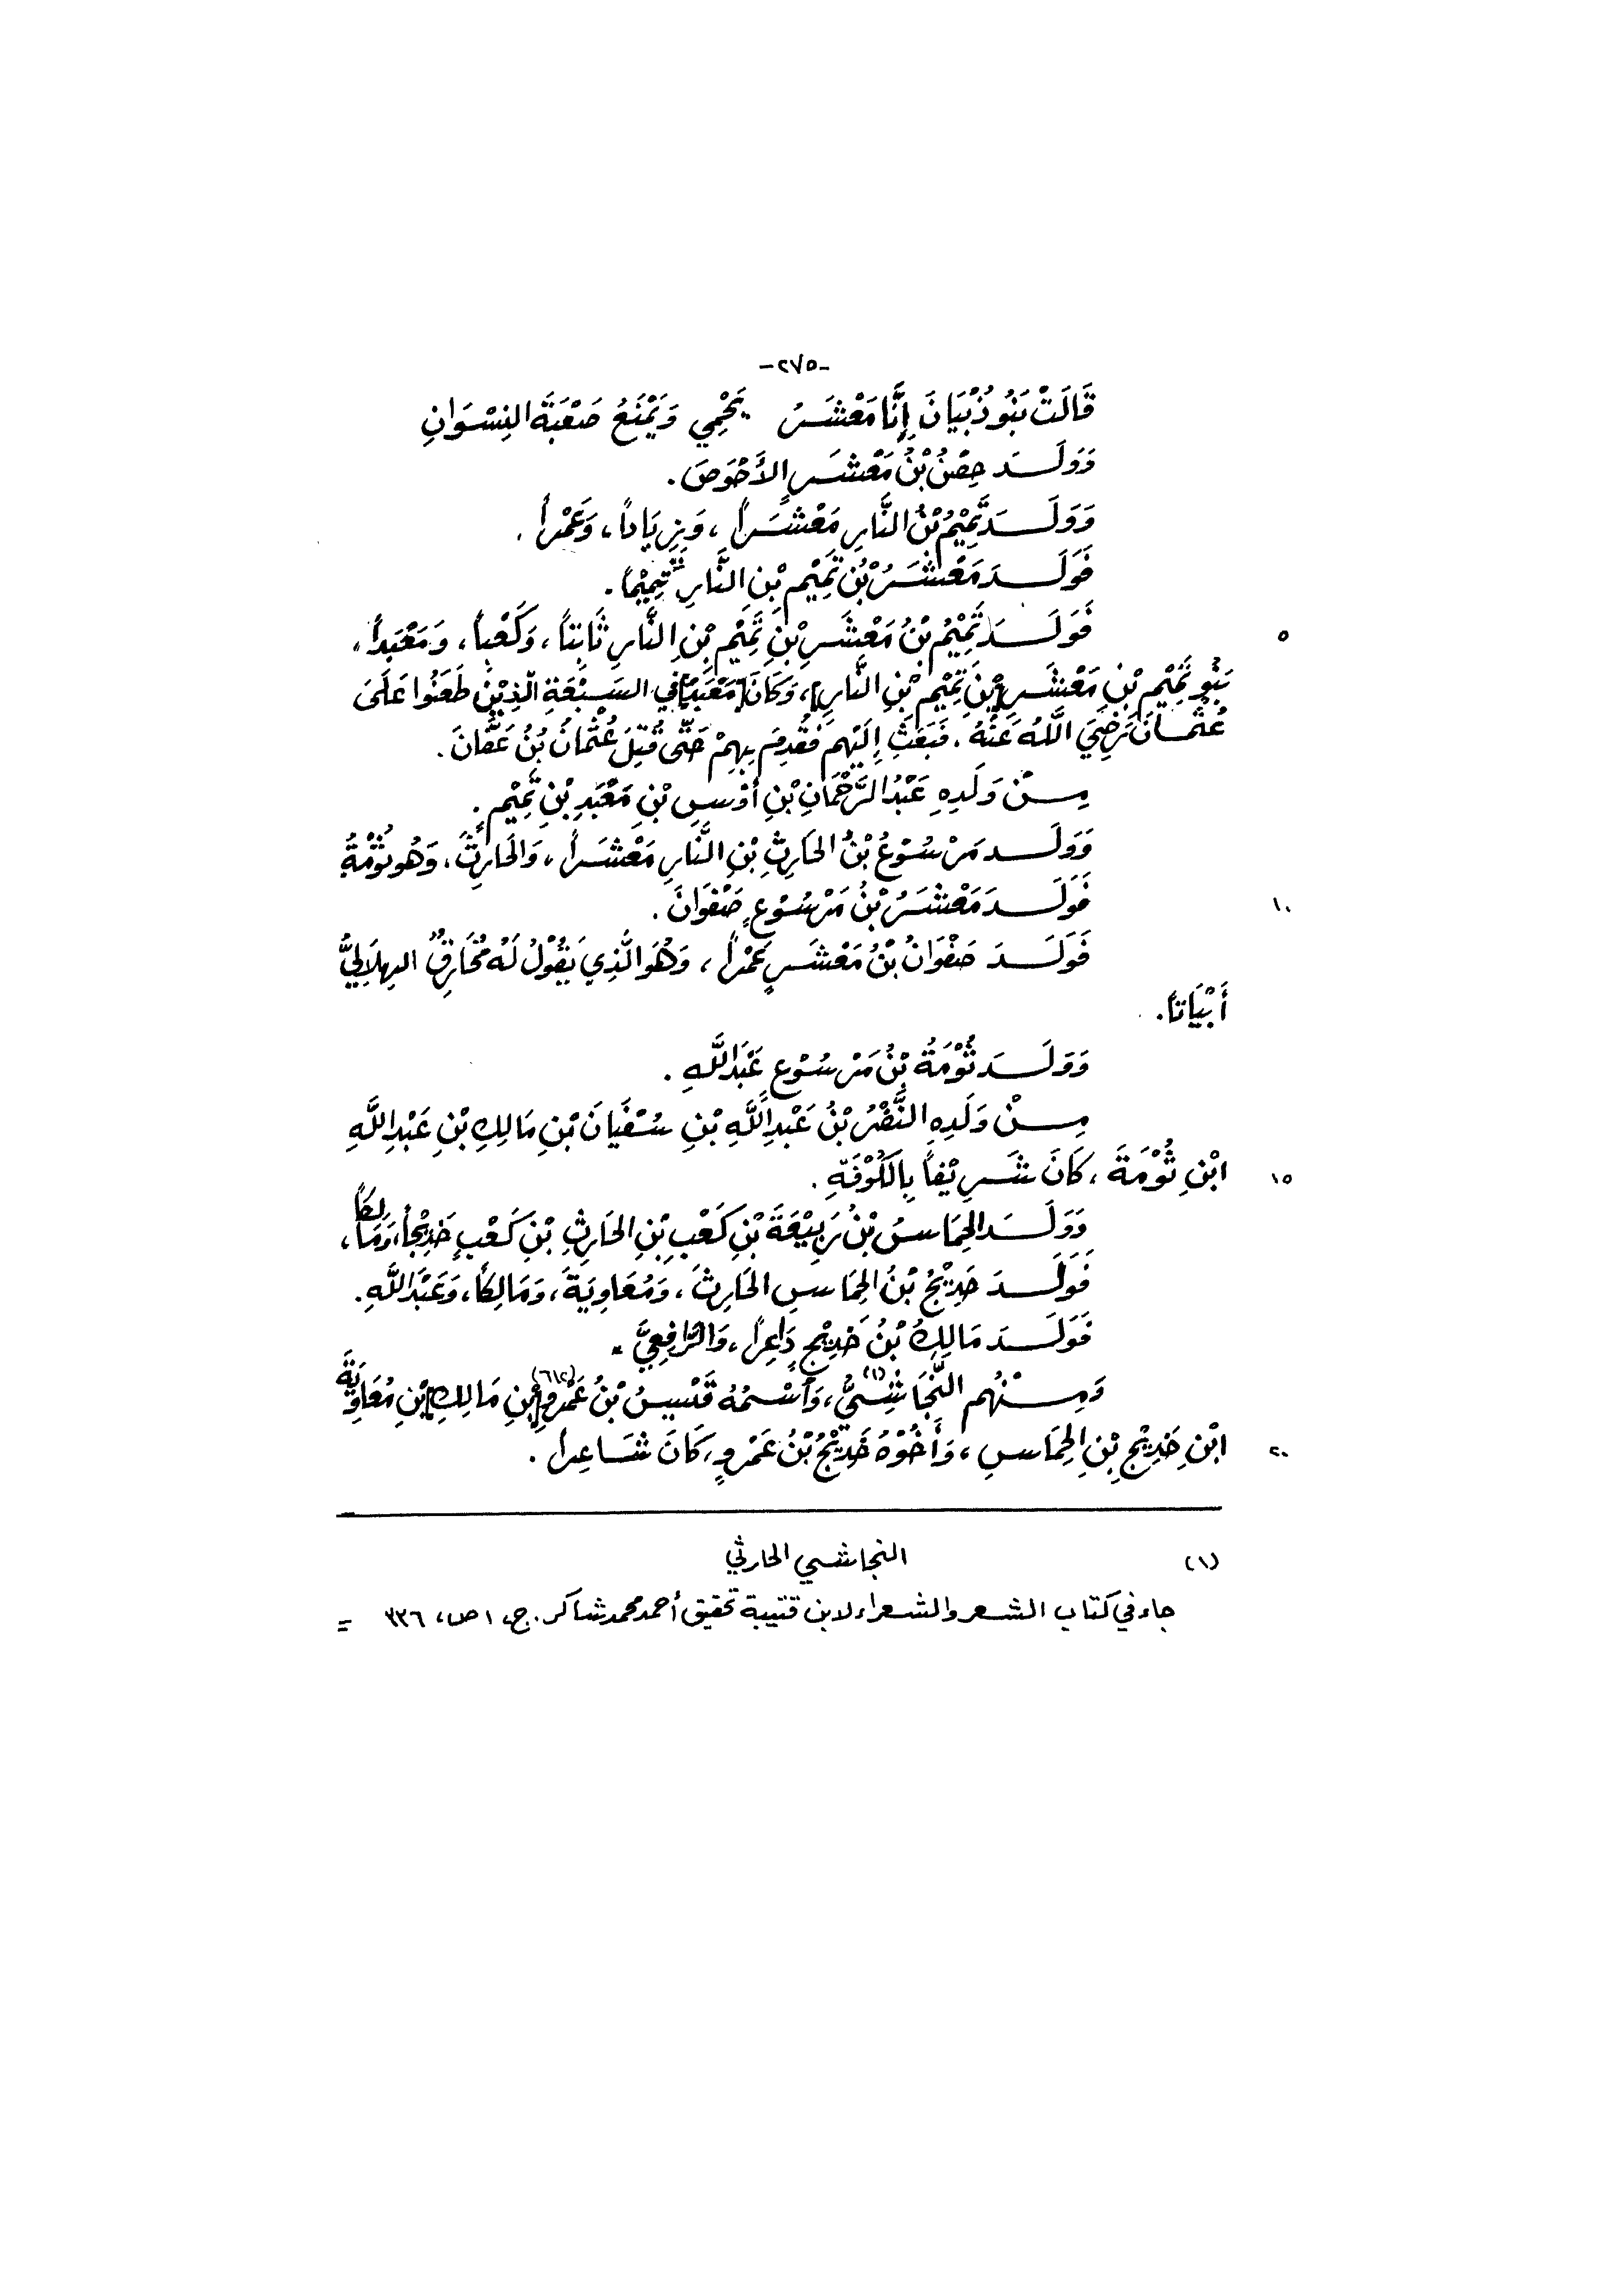 -٢٧٥-
قَالَتْ بَنُو ذُبْيَانَ إِنَّا مَعْشَرُ   يَحْمِي وَيَمْنَعُ صَعْبَةَ النِسْوَانِ
وَوَلَـــدَ حِصْنُ بْنُ مَعْشَرٍ الأَحْوَصَ.
وَوَلَـــدَ تَمِيْمُ بْنُ النَّارِ مَعْشَراً، وَزِيَاداً، وَعَمْراً.
فَوَلَـــدَ مَعْشَرُ بْنُ تَمِيْمِ بْنِ النَّارِ تَمِيْماً.
٥ فَوَلَـــدَ تَمِيْمُ بْنُ مَعْشَرِ بْنِ تَمِيْمِ بْنِ النَّارِ ثَابِتاً، وَكَعْباً، وَمَعْبَداً،
بَنُو تَمِيْمِ بْنِ مَعْشَرِ [بْنِ تَمِيْمِ بْنِ النَّارِ]، وَكَانَ [مَعْبَدٌ] فِي السَبْعَةِ الَّذِيْنَ طَعَنُوا عَلَىَ
عُثْمَـانَ رَضِيَ اللَّهُ عَنْهُ. فَبَعَثَ إِلَيْهِم فَقُدِمَ بِهِمْ حَتَّى قُتِلَ عُثْمَانُ بْنُ عَفَّانَ.
مِـــنْ وَلَدِهِ عَبْدُ الرَّحْمَانِ بْنِ أَوْسِ بْنِ مَعْبَدِ بْنِ تَمِيْمٍ.
وَوَلَـــدَ مَرْسُوْعُ بْنُ الحَارِثِ بْنِ النَّارِ مَعْشَراً، وَالحَارِثَ، وَهُوَ ثُوْمَةُ
١٠ فَوَلَـــدَ مَعْشَرُ بْنُ مَرْسُوْعٍ صَفْوَانَ.
فَوَلَـــدَ صَفْوَانُ بْنُ مَعْشَرٍ عَمْراً، وَهُوَ الَّذِي يَقُوْلُ لَهُ مُخَارِقٌ الهِلَالِيُّ
أَبْيَاتاً.
وَوَلَـــدَ ثُوْمَةُ بْنُ مَرْسُوْعٍ عَبْدَ اللَّهِ.
مِـــنْ وَلَدِهِ النَّضْرُ بْنُ عَبْدِ اللَّهِ بْنِ سُفْيَانَ بْنِ مَالِكِ بْنِ عَبْدِ اللَّهِ
١٥ ابْنِ ثُوْمَةَ، كَانَ شَرِيْفاً بِالكُوْفَةِ.
وَوَلَـــدَ الحِمَاسُ بْنُ رَبِيْعَةَ بْنِ كَعْبِ بْنِ الحَارِثِ بْنِ كَعْبٍ خَدِيْجاً، وَمَالِكاً،
فَوَلَـــدَ خَدِيْجُ بْنُ الحِمَاسِ الحَارِثَ، وَمُعَاوِيَةَ، وَمَالِكاً، وَعَبْدَ اللَّهِ.
فَوَلَـــدَ مَالِكُ بْنُ خَدِيْجٍ دَاعِراً، وَالرَّافِعِيَّ.
وَمِـــنْهُم النَّجَاشِيُّ(١)، وَأسْمُهُ قَيْسُ بْنُ عَمْرِو(٦١٤) [بْنِ مَالِكِ] بْنِ مُعَاوِيَةَ
٢٠ ابْنِ خَدِيْجِ بْنِ الحِمَاسِ، وَأَخُوْهُ خَدِيْجُ بْنُ عَمْرٍو، كَانَ شَاعِراً.
(١) النجاشي الحارثي
جاء في كتاب الشعر والشعراء لابن قتيبة تحقيق أحمد محمد شاكر. ج، ١ ص، ٣٣٦ =